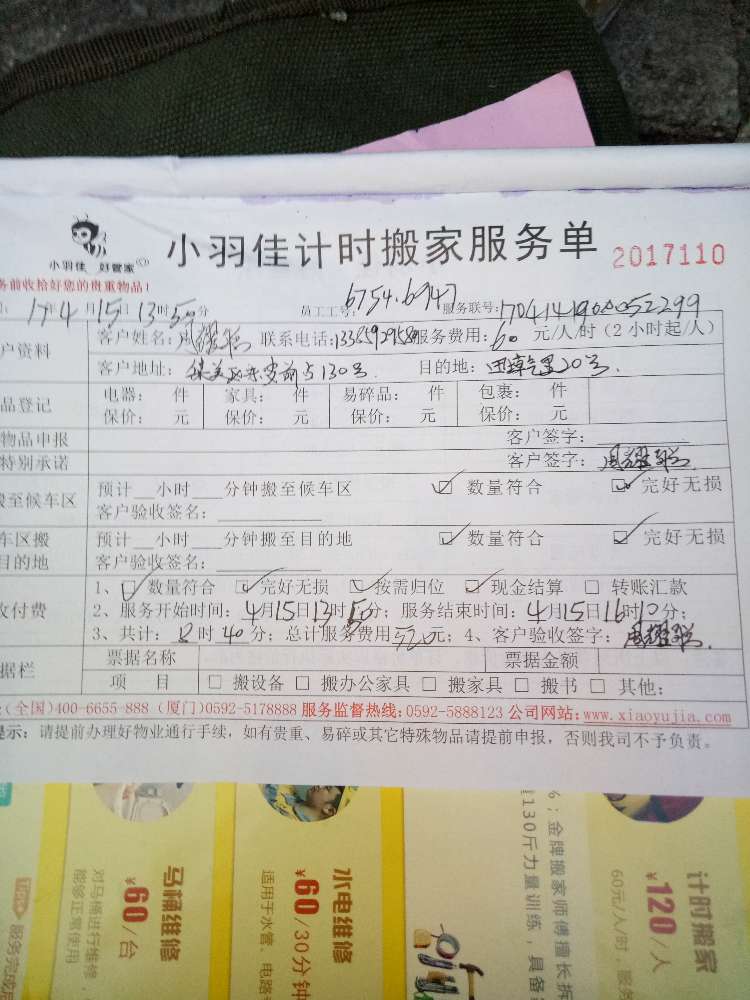 小羽佳计时搬家服务单 2017110
小羽佳 好管家
务前收拾好您的贵重物品!
17年4月15日13时50分 员工工号:6754.6947 服务联号:
户资料 客户姓名: 联系电话: 服务费用:60元/人/时(2小时起/人)
客户地址: 130号 目的地: 20号.
品登记 电器: 件 家具: 件 易碎品: 件 包裹: 件
保价: 元 保价: 元 保价: 元 保价: 元
物品申报 客户签字:
特别承诺 客户签字:
搬至候车区 预计__小时__分钟搬至候车区 ☑ 数量符合 ☑ 完好无损
客户验收签名:
车区搬 预计__小时__分钟搬至目的地 ☑ 数量符合 ☑ 完好无损
目的地 客户验收签名:
收付费 1、☑ 数量符合 ☑ 完好无损 ☑ 按需归位 ☑ 现金结算 □ 转账汇款
2、服务开始时间:4月15日13时 分;服务结束时间:4月15日16时10分;
3、共计: 时40分;总计服务费用520元;4、客户验收签字:
据栏 票据名称 票据金额
项 目 □ 搬设备 □ 搬办公家具 □ 搬家具 □ 搬书 □ 其他:
(全国)400-6655-888 (厦门)0592-5178888 服务监督热线:0592-5888123 公司网站:www.xiaoyujia.com
提示:请提前办理好物业通行手续,如有贵重、易碎或其它特殊物品请提前申报,否则我司不予负责。
计时搬家
¥120/人
60元/人/时
金牌搬家师傅擅长拆
130斤力量训练,具备
水电维修
¥60/30分钟
适用于水管、电路
马桶维修
¥60/台
对马桶进行维修,
能够正常使用
服务完成后